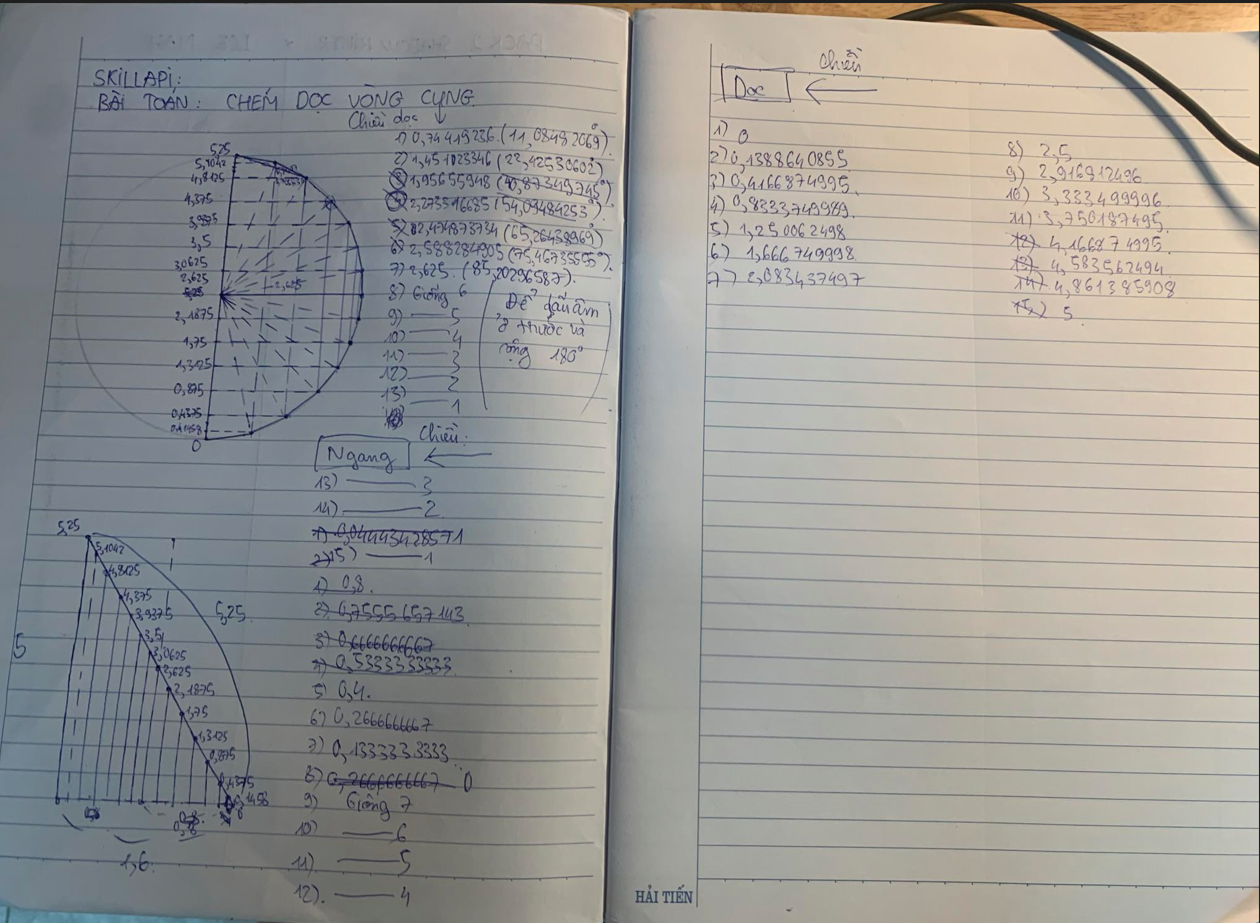 SKILLAPI:
BÀI TOÁN: CHÉM DỌC VÒNG CUNG
Chiều dọc ↓
1) 0,74419236 (11,08482069°).
2) 1,451023346 (23,42530602°)
3) 1,95655948 (40,87349745°)
4) 2,273596685 (54,09484253°).
5) 2,474873734 (65,26438969°)
6) 2,588284905 (75,46735555°).
7) 2,625. (85,20296587).
8) Giống 6
9) —— 5
10) —— 4
11) —— 3
12) —— 2
13) —— 1
Để dấu âm
ở trước và
cộng 180°
5,25
5,1042
4,8125
4,375
3,9375
3,5
3,0625
2,625
5,25
2,625
2,1875
1,75
1,3125
0,875
0,4375
0,1458
0
Ngang
Chiều:
←
13) —— 3
14) —— 2
1) 0,04443428571
2) 15) —— 1
1) 0,8.
2) 0,7555657143
3) 0,6666666667
4) 0,5333333333
5) 0,4.
6) 0,266666667
7) 0,1333333333
8) 0,2666666667 0
9) Giống 7
10) —— 6
11) —— 5
12). —— 4
5,25
5,1042
4,8125
4,375
3,9375
3,5
3,0625
2,625
2,1875
1,75
1,3125
0,875
0,4375
0,1458
5,25
5
0,8
1,6
Dọc
Chiều
←
1) 0
2) 0,1388640855
3) 0,4166874995
4) 0,8333749989
5) 1,250062498
6) 1,666749998
7) 2,083437497
8) 2,5
9) 2,916812496
10) 3,333499996
11) 3,750187495
12) 4,166874995
13) 4,583562494
14) 4,861385908
15) 5
HẢI TIẾN